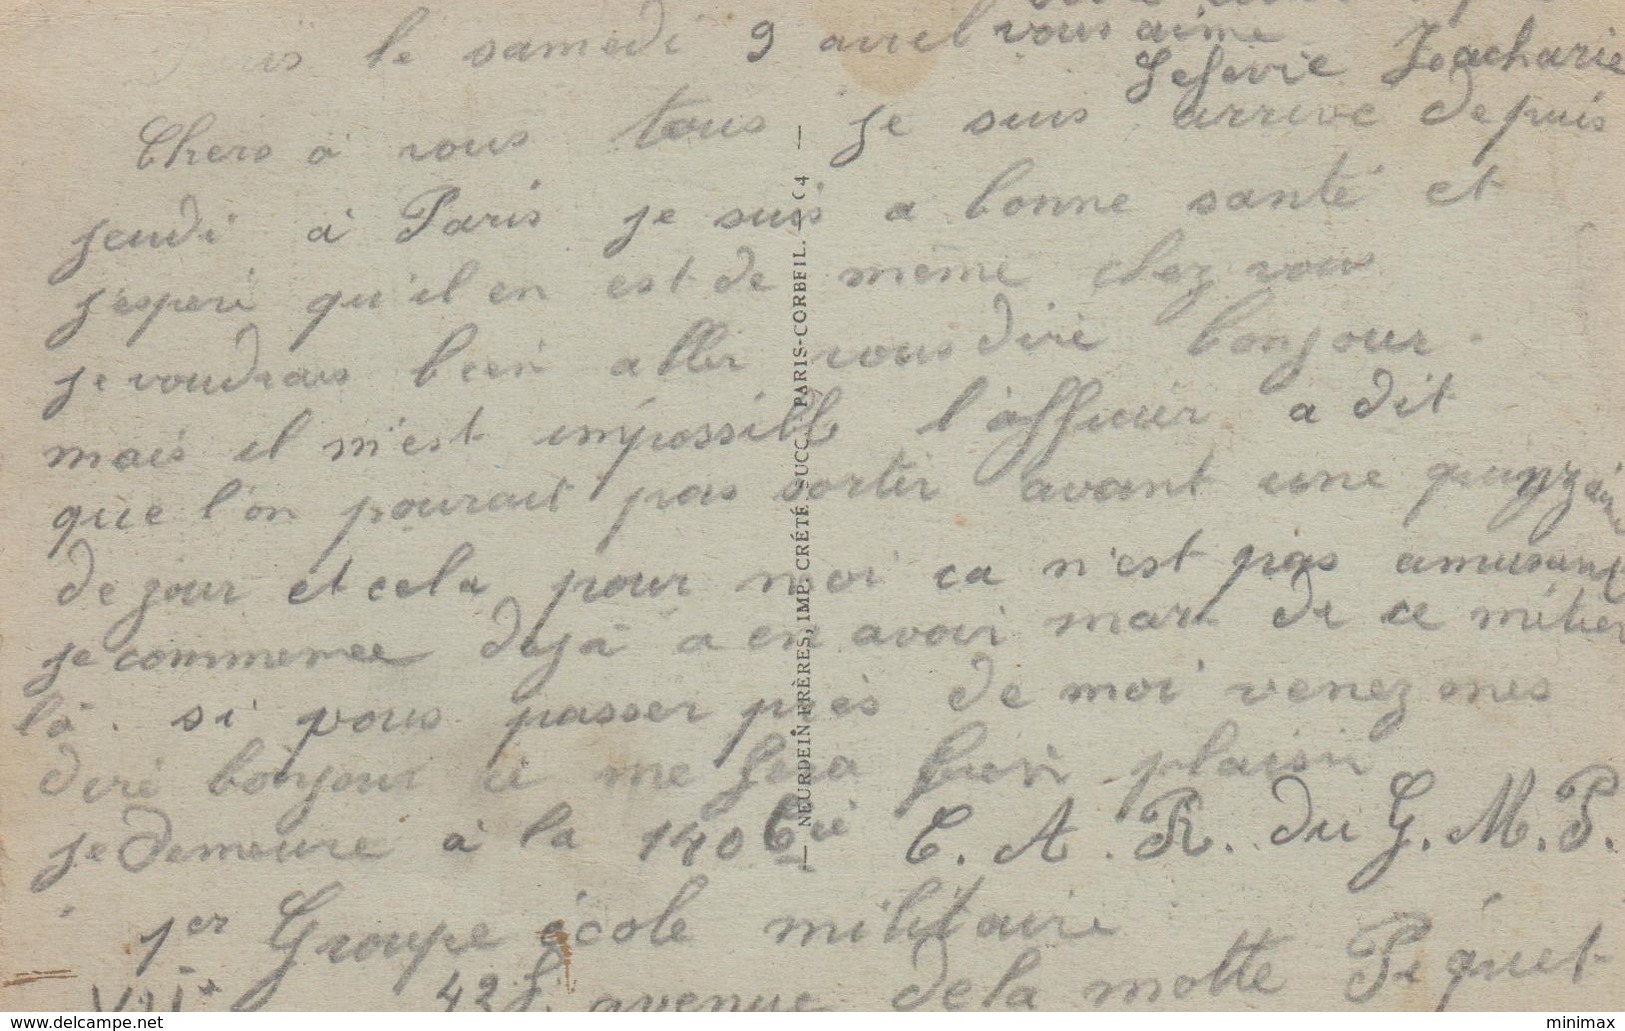 le samedi 9 avril vous aime
Lefevre Zacharie
Chers a vous tous je suis arrive depuis
jeudi à Paris je suis a bonne santé et
j'esperé qu'il en est de même chez vous
je voudrais bien aller vous dire bonjour.
mais il m'est impossible l'officier a dit
que l'on pourait pas sortir avant une quinzaine
de jour et cela pour moi ca n'est pas amusant
je commence dejà a en avoir mar de ce métier
là. si vous passer près de moi venez mes
dire bonjour ci me fera bien plaisir
je demeure à la 140 Cie C. A. R. du G. M. P.
1er Groupe école militaire
VIIe 42 avenue de la motte Piquet
— NEURDEIN FRÈRES, IMP. CRÉTÉ, SUCC., PARIS-CORBEIL. — C4 —
minimax
www.delcampe.net